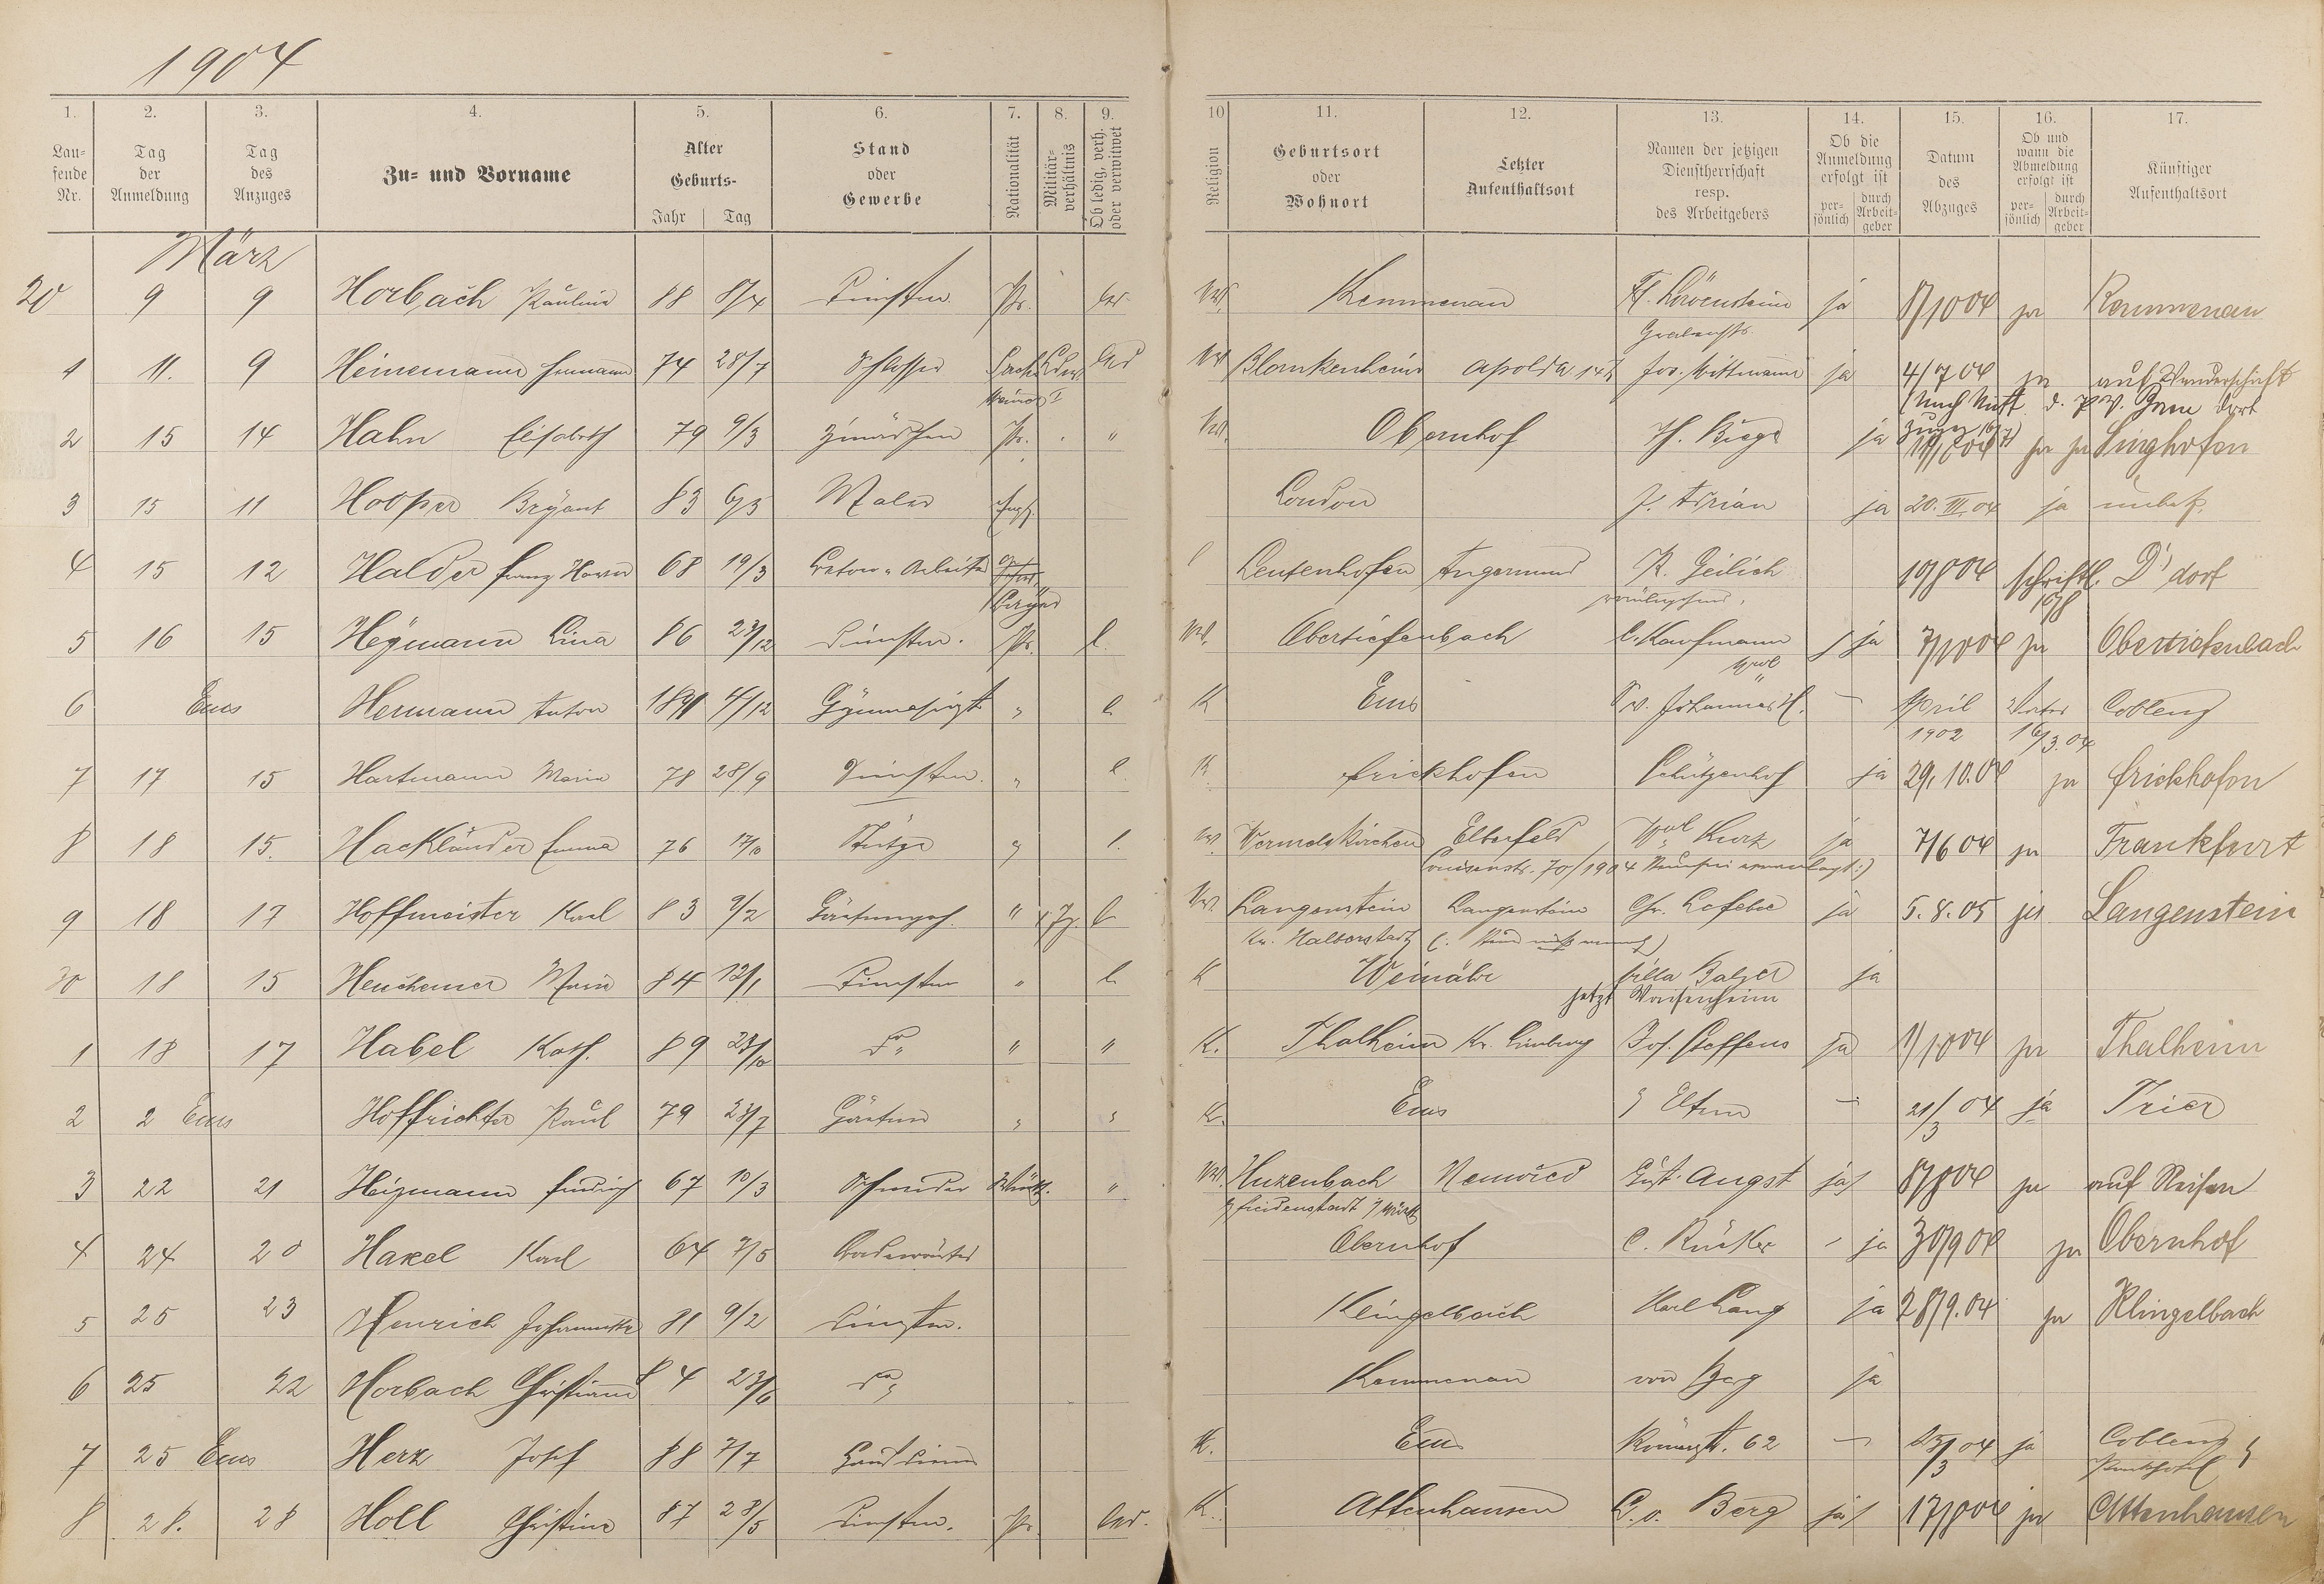 1904
1. 2. 3. 4. 5. 6. 7. 8. 9. 10 11. 12. 13. 14. 15. 16. 17.
Lau-
fende
Nr.
Tag
der
Anmeldung
Tag
des
Anzuges
Zu- und Vorname
Alter
Geburts-
Jahr Tag
Stand
oder
Gewerbe
Nationalität
Militär-
verhältnis
Ob ledig, verh.
oder verwitwet
Religion
Geburtsort
oder
Wohnort
Letzter
Aufenthaltsort
Namen der jetzigen
Dienstherrschaft
resp.
des Arbeitgebers
Ob die
Anmeldung
erfolgt ist
per-
sönlich
durch
Arbeit-
geber
Datum
des
Abzuges
Ob und
wann die
Abmeldung
erfolgt ist
per-
sönlich
durch
Arbeit-
geber
Künftiger
Aufenthaltsort
März
20 9 9 Horbach Pauline 88 8/4 Dienstm. Pr. led. Kemmenau Löwenstein ja 8/10 04 ja Kemmenau
Grabenstr.
1 11. 9 Heinemann Hermann 74 28/7 Schlosser led Blankenhein Apolda Jos. Wittmann ja 4/7 04 ja auf Wanderschaft
2 15 14 Hahn Elisabeth 79 9/3 Pr. " Obernhof ja ja ja Singhofen
3 15 11 Hooper Bryant 83 6/3 Maler Engl. London J. Adrian ja 20. III. 04 ja unbek.
4 15 12 Halder Franz Xaver 68 19/3 Beton-Arbeiter Leutenhofen Angermund K. Geilich 19/8 04 schriftl. D'dorf
Bayer
5 16 15 Heymann Lina 86 23/12 Dienstm. Pr. l. Obertiefenbach C. Kaufmann ja 7/10 04 ja Obertiefenbach
6 Ems Hermann Anton 1891 4/12 Gymnasiast " l K Ems Johannes H. – April Vater Coblenz
1902 16/3.04
7 17 15 Hartmann Maria 78 28/9 Dienstm. " l. K Frickhofen Schützenhof ja 29.10.04 ja Frickhofen
8 18 15. Hackländer Emma 76 17/10 Stütze " l. Wermelskirchen Elberfeld Kurz ja 7/6 04 ja Frankfurt
Louisenstr. 70/1904
9 18 17 Hoffmeister Karl 83 9/2 Gärtnergeh. " l Langenstein Langenstein Chr. Lefebre ja 5.8.05 ja Langenstein
Kr. Halberstadt
30 18 15 Heuchemer Maria 84 12/1 Dienstm " l K Weinähr Villa Balzer ja
jetzt Waisenheim
1 18 17 Habel Kath. 89 23/10 do " " K. Thalheim Kr. Limburg Jos. Steffens ja 1/10 04 ja Thalheim
2 2 Ems Hoffrichter Paul 79 23/7 Gärtner " " K. Ems Eltern – 21/3 04 ja Trier
3 22 21 Heizmann Friedrich 67 10/3 Schneider Württ. " Huzenbach Neuwied Gust. Angst ja 8/8 04 ja auf Reisen
4 24 20 Haxel Karl 64 7/5 Badewärter Obernhof C. Rücker – ja 30/9 04 ja Obernhof
5 25 23 Henrich Johannette 81 9/2 Dienstm. Klingelbach Karl Lang ja 28/9.04 ja Klingelbach
6 25 22 Horbach Christiane 84 23/6 do Kemmenau von Berg ja
7 25 Ems Herz Josef 88 7/7 Hausdiener K. Ems Römerstr. 62 – 25/3 04 ja Coblenz
8 28. 28 Holl Christine 87 28/5 Dienstm. Pr. led. K. Attenhausen C. v. Berg ja 17/8 04 ja Attenhausen